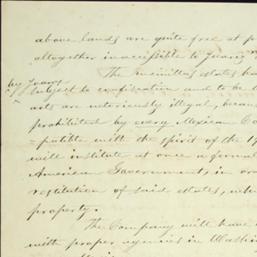 above lands are quite free at p
altogether inaccessible to Juarez
by Juarez
The recinittas states ha
subject to confiscation and to be
acts are notoriously illegal, becau
prohibited by every Mexican Co
=patible with the spirit of the 19
will institute at once a formal
American Government, in or
restitution of said states, whi
property.
The Company will have
with proper agencies in Washin